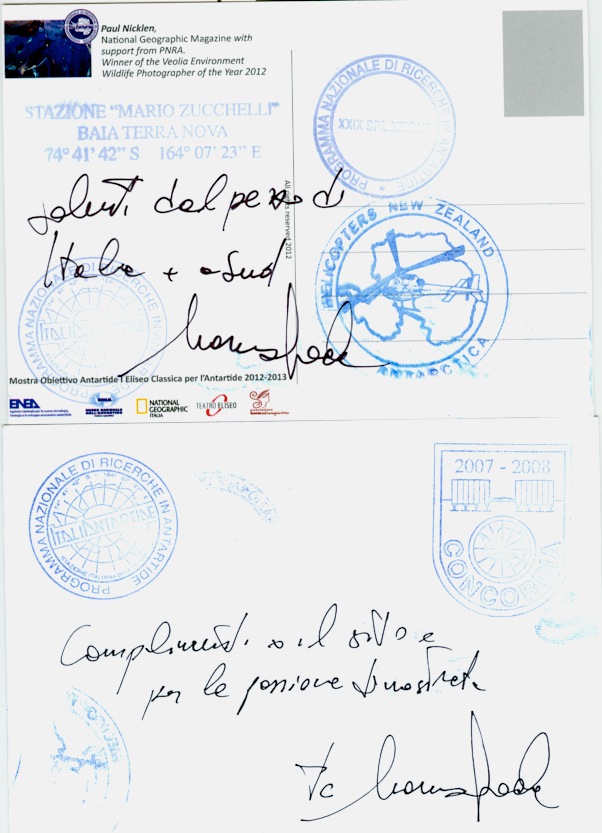 Paul Nicklen,
National Geographic Magazine with
support from PNRA.
Winner of the Veolia Environment
Wildlife Photographer of the Year 2012
STAZIONE "MARIO ZUCCHELLI"
BAIA TERRA NOVA
74° 41' 42" S 164° 07' 23" E
PROGRAMMA NAZIONALE DI RICERCHE IN ANTARTIDE
XXIX SPEDIZIONE
All rights reserved 2012
saluti dal pezzo di
Italia + a Sud
HELICOPTERS NEW ZEALAND
ANTARCTICA
PROGRAMMA NAZIONALE DI RICERCHE IN ANTARTIDE
ITALIANTARTIDE
Mostra Obiettivo Antartide I Eliseo Classica per l'Antartide 2012-2013
ENEA
NATIONAL
GEOGRAPHIC
ITALIA
TEATRO ELISEO
PROGRAMMA NAZIONALE DI RICERCHE IN ANTARTIDE
ITALIANTARTIDE
2007 - 2008
CONCORDIA
Complimenti x il sito e
per la passione dimostrata